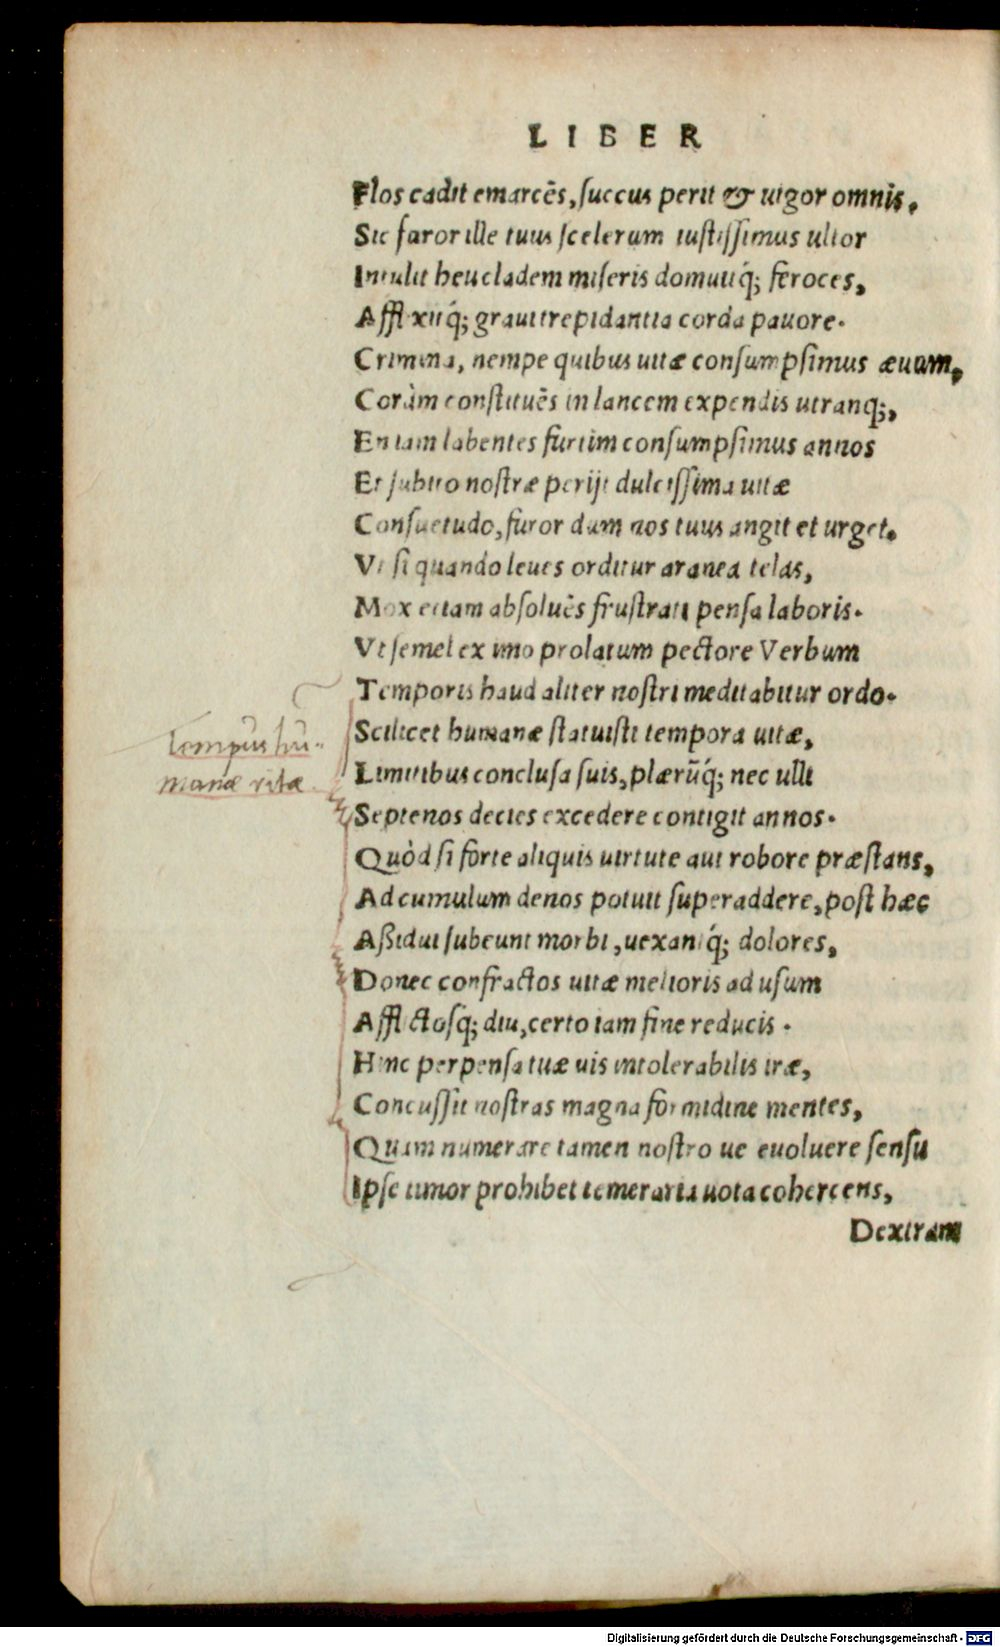 LIBER
Flos cadit emarcēs, succus perit & uigor omnis,
Sic furor ille tuus scelerum iustissimus ultor
Intulit heu cladem miseris domuitq́; feroces,
Afflixitq́; graui trepidantia corda pauore.
Crimina, nempe quibus uitæ consumpsimus æuum,
Coràm constituēs in lancem expendis utranq;,
En iam labentes furtim consumpsimus annos
Et subito nostræ perijt dulcissima uitæ
Consuetudo, furor dum nos tuus angit et urget.
Vt si quando leues orditur aranea telas,
Mox etiam absoluēs frustrati pensa laboris.
Vt semel ex imo prolatum pectore Verbum
Temporis haud aliter nostri meditabitur ordo.
Scilicet humanæ statuisti tempora uitæ,
Tempus hu-
manæ vitæ
Limitibus conclusa suis, plærūq́; nec ulli
Septenos decies excedere contigit annos.
Quòd si forte aliquis uirtute aut robore præstans,
Ad cumulum denos potuit superaddere, post hæc
Aßidui subeunt morbi, uexantq́; dolores,
Donec confractos uitæ melioris ad usum
Afflictosq́; diu, certo iam fine reducis.
Hinc perpensa tuæ uis intolerabilis iræ,
Concussit nostras magna formidine mentes,
Quam numerare tamen nostro ue euoluere sensu
Ipse timor prohibet temeraria uota cohercens,
Dextram
Digitalisierung gefördert durch die Deutsche Forschungsgemeinschaft - DFG